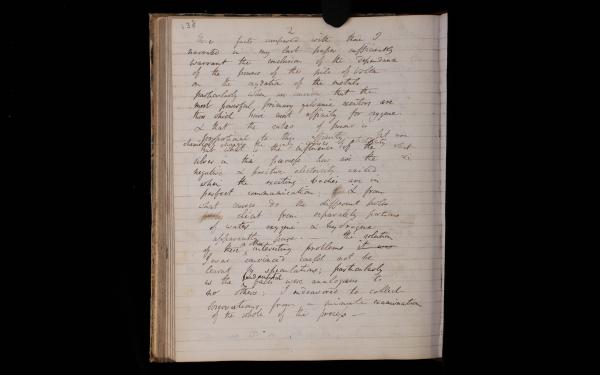 138
2
These facts compared with those I
narrated in my last paper sufficiently
warrant the conclusion of the dependence
of the powers of the pile of Volta
on the oxydation of the metals
particularly when we consider that the
most powerful, primary galvanic exciters are
those which have most affinity for oxygene
& that the ratio of power is
proportional to this affinity. — But
is the influence of the
silver in this process how are the
negative & positive electricity excited
when the exciting bodies are in
perfect communication; & from
what causes do the different poles
elicit from separately portions
of water oxygene & hydrogene
apparently pure. — the solution
of these interesting problems it was
I was convinced could not be
learnt by speculations; particularly
as the fundamental facts were analogous to
no others; I endeavored to collect
observations, from a minute examination
of the whole of the process —